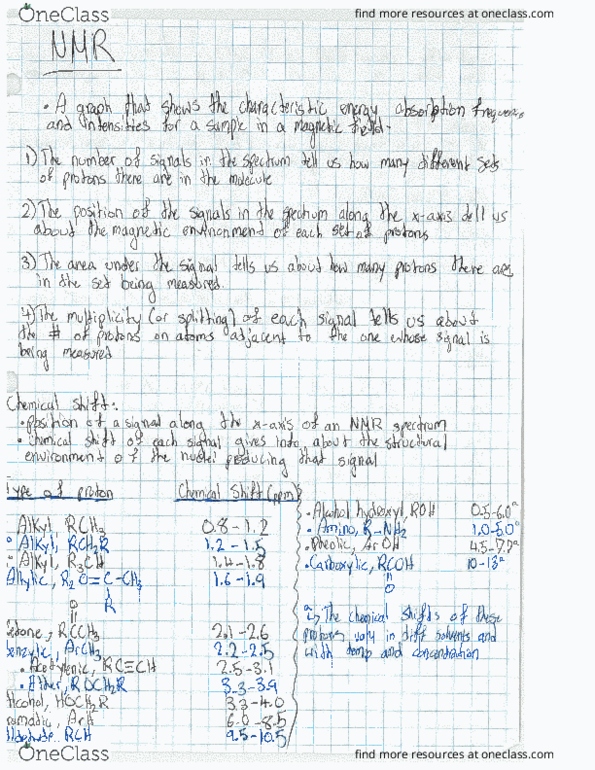 OneClass
find more resources at oneclass.com
NMR
• A graph that shows the characteristic energy absorption
and intensities for a sample in a magnetic field.
1) The number of signals in the spectrum tell us how many different sets
of protons there are in the molecule
2) The position of the signals in the spectrum along the x-axis tell us
about the magnetic environment of each set of protons
3) The area under the signal tells us about how many protons there are
in the set being measured.
4) The multiplicity (or splitting) of each signal tells us about
the # of protons on atoms adjacent to the one whose signal is
being measured
Chemical shift:
• position of a signal along the x-axis of an NMR spectrum
• chemical shift of each signal gives info about the structural
environment of the nuclei producing that signal
Type of proton Chemical Shift (ppm)
Alkyl, RCH3 0.8-1.2
• Alkyl, RCH2R 1.2-1.5
• Alkyl, R3CH 1.4-1.8
Allylic, R2C=C-CH3 1.6-1.9
R
O
Ketone, RCCH3 2.1-2.6
Benzylic, ArCH3 2.2-2.5
• Acetylenic, RC≡CH 2.5-3.1
• Ether, ROCH2R 3.3-3.9
Alcohol, HOCH2R 3.3-4.0
Aromatic, ArH 6.0-8.5
Aldehyde, RCH 9.5-10.5
• Alcohol hydroxyl, ROH 0.5-6.0a
• Amino, R-NH2 1.0-5.0a
• Phenolic, ArOH 4.5-7.7a
• Carboxylic, RCOH 10-13a
O
a↳ The chemical shifts of these
protons vary in diff solvents and
with temp and concentration
OneClass
find more resources at oneclass.com